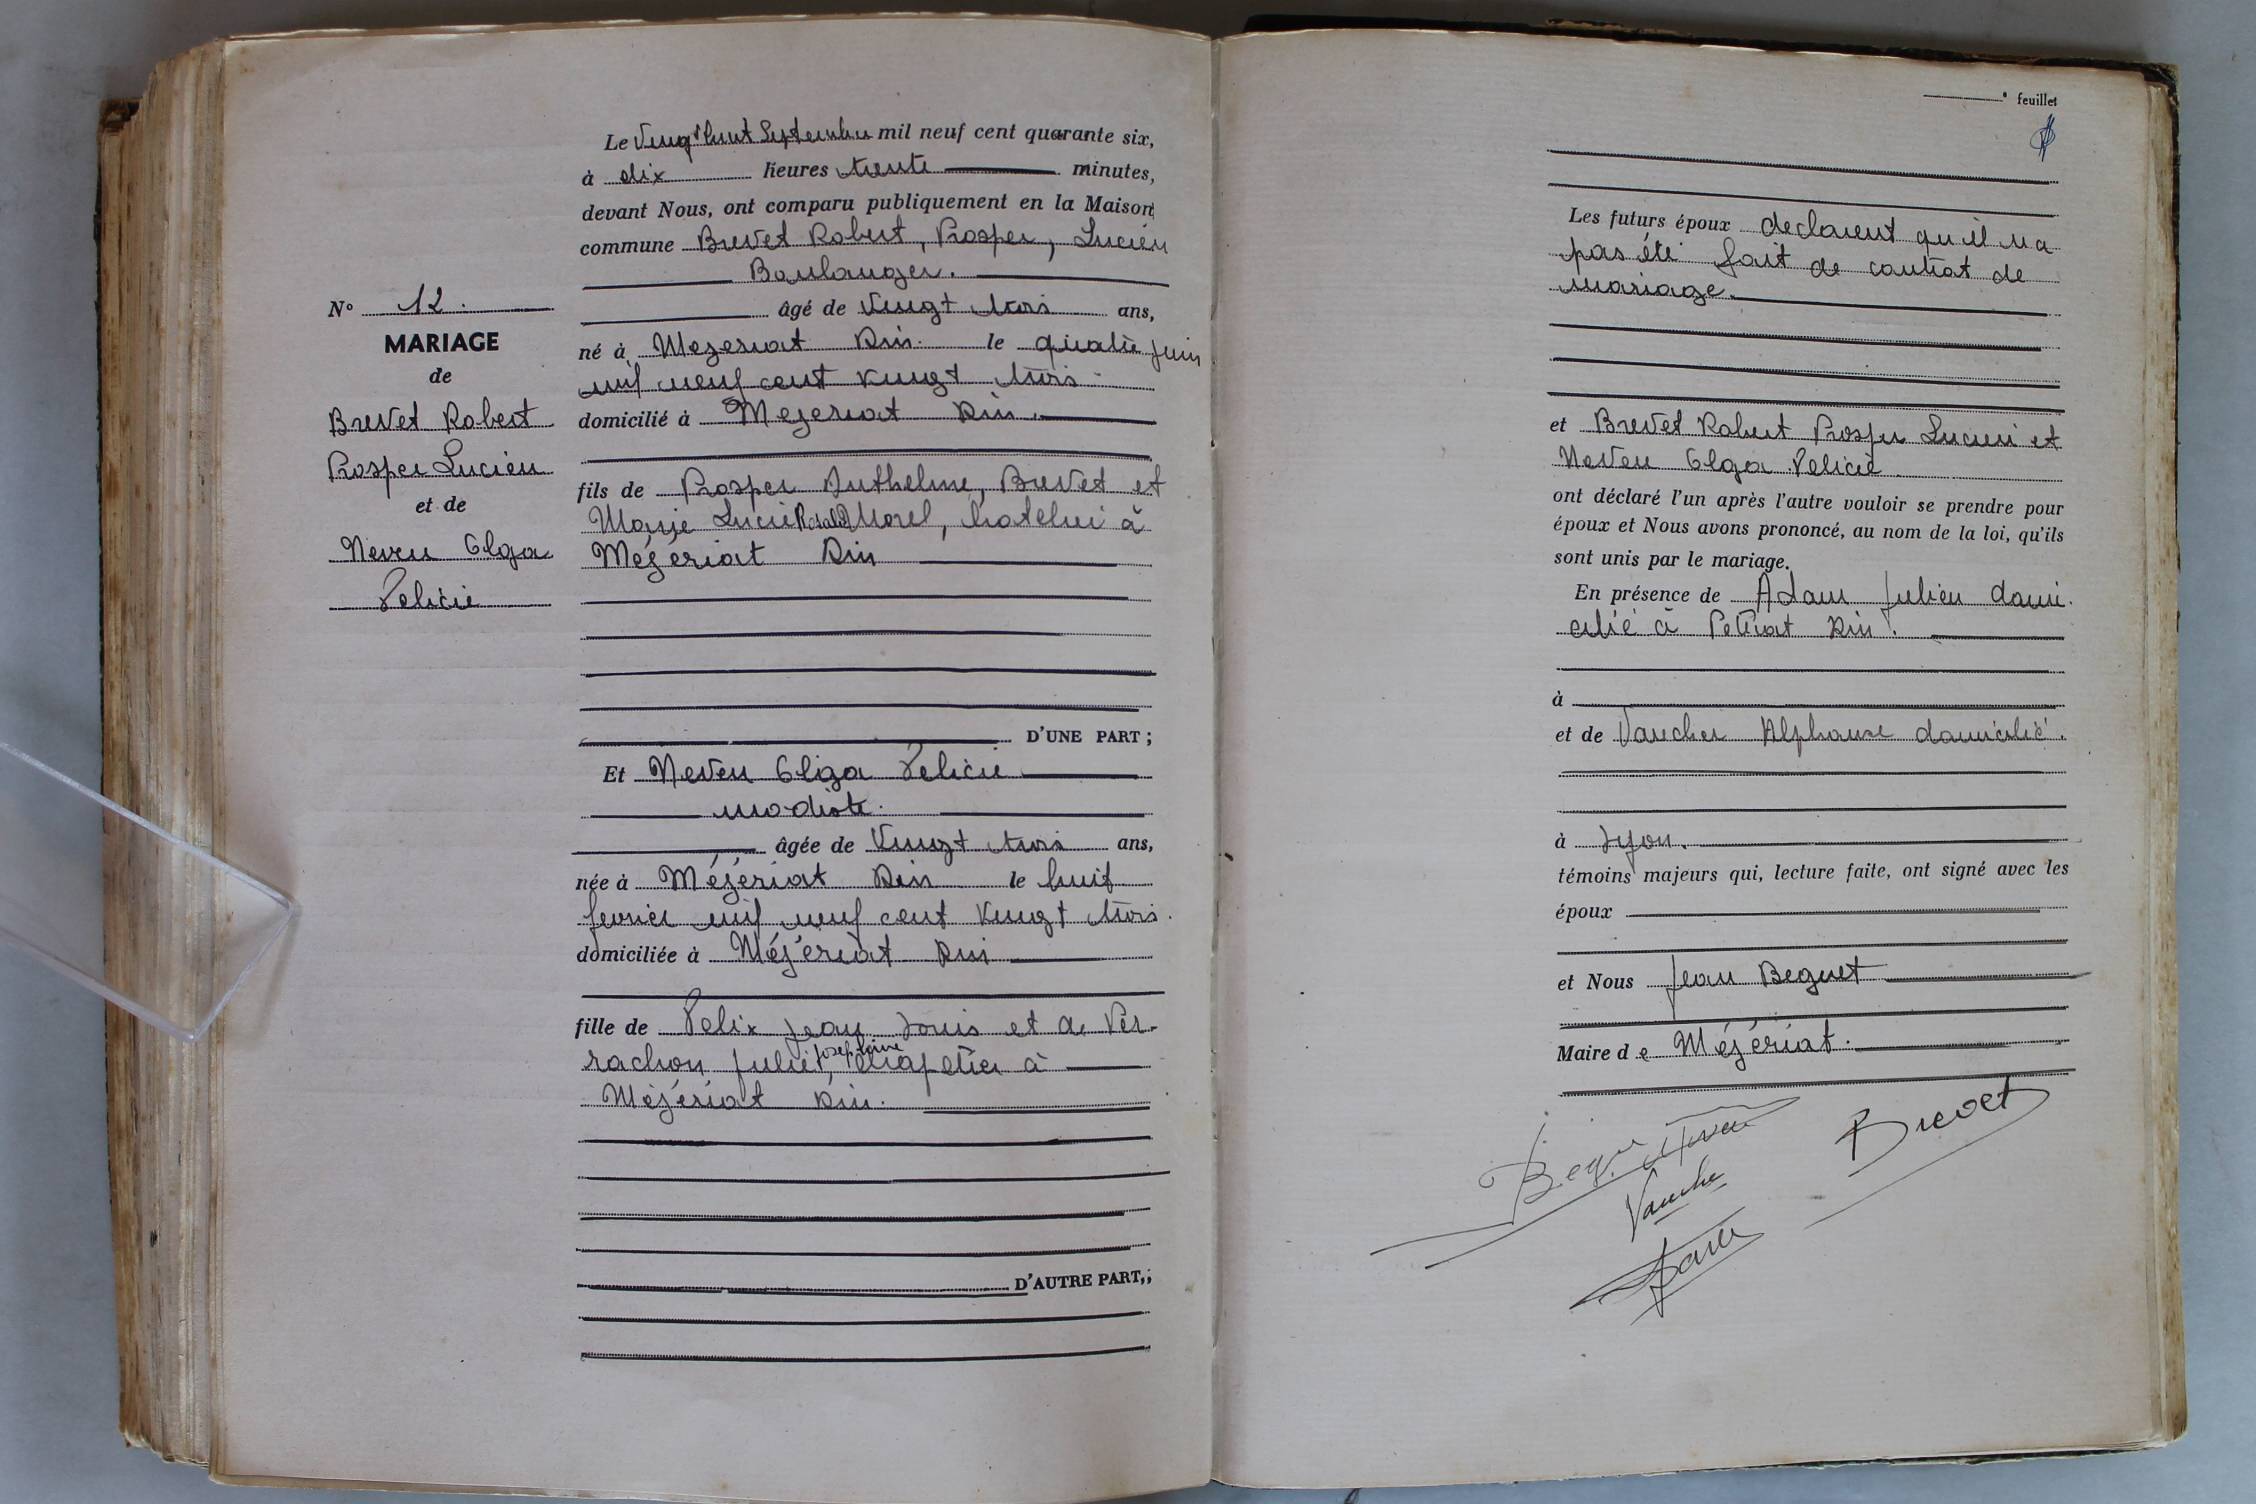 Le Vingt huit Septembre mil neuf cent quarante six,
à dix heures trente minutes,
devant Nous, ont comparu publiquement en la Maison
commune Brevet Robert, Prosper, Lucien
Boulanger.
âgé de Vingt trois ans,
né à Mezeriat Ain. le quatre juin
mil neuf cent vingt trois
domicilié à Mezeriat Ain.
fils de Prosper Anthelme, Brevet et
Marie Lucie Rosalie Morel, hotelier à
Mézériat Ain
D'UNE PART ;
N° 12.
MARIAGE
de
Brevet Robert
Prosper Lucien
et de
Neveu Olga
Felicie
Et Neveu Olga Felicie
modiste.
âgée de Vingt trois ans,
née à Mézériat Ain le huit
fevrier mil neuf cent vingt trois.
domiciliée à Mézériat Ain
fille de Felix Jean Louis et de Ver-
rachon Julie, Josephine
à
Mézériat Ain.
D'AUTRE PART,;
feuillet
Les futurs époux declarent qu'il na
pas été fait de contrat de
mariage.
et Brevet Robert Prosper Lucien et
Neveu Olga Felicie
ont déclaré l'un après l'autre vouloir se prendre pour
époux et Nous avons prononcé, au nom de la loi, qu'ils
sont unis par le mariage.
En présence de Adam Julien domi
cilié à Ain.
à
et de Vaucher Alphonse domicilié.
à Lyon.
témoins majeurs qui, lecture faite, ont signé avec les
époux
et Nous Jean Beguet
Maire de Mézériat.
Brevet